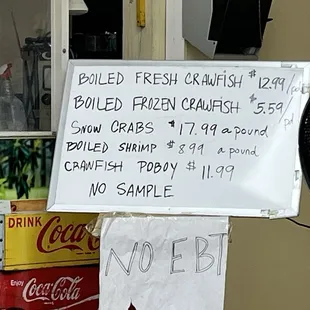 BOILED FRESH CRAWFISH $12.99/pd
BOILED FROZEN CRAWFISH $5.59/pd
SNOW CRABS $17.99 a pound
BOILED SHRIMP $8.99 a pound
CRAWFISH POBOY $11.99
NO SAMPLE
NO EBT
DRINK
Coca
Enjoy
Coca-Cola